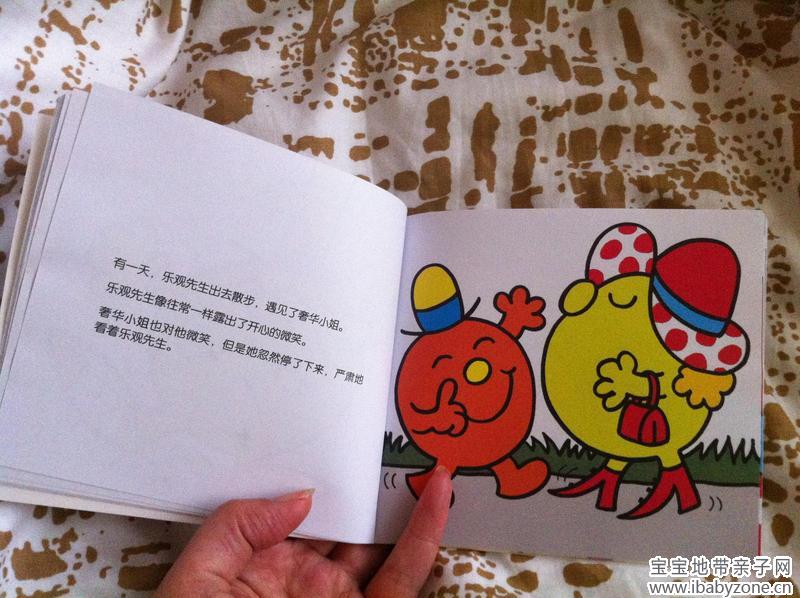 有一天，乐观先生出去散步，遇见了奢华小姐。
乐观先生像往常一样露出了开心的微笑。
奢华小姐也对他微笑，但是她忽然停了下来，严肃地
看着乐观先生。
宝宝地带亲子网
www.ibabyzone.cn